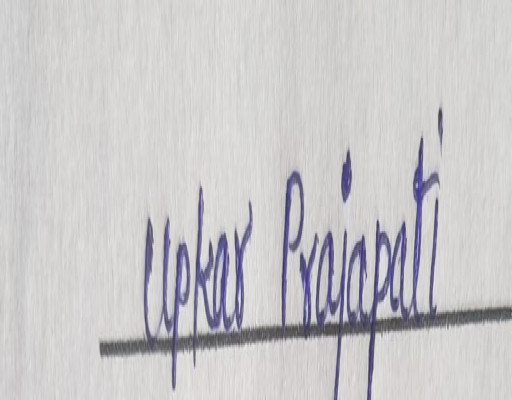 Upkar Prajapati